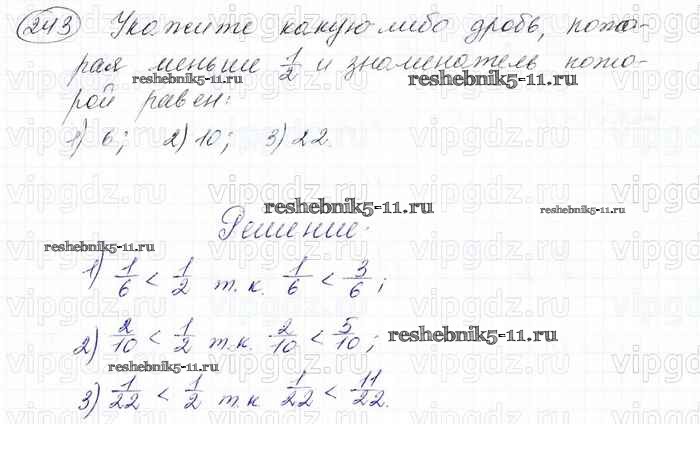 243 Укажите какую-либо дробь, кото-
рая меньше 1/2 и знаменатель кото-
рой равен:
1) 6; 2) 10; 3) 22.
Решение:
1) 1/6 < 1/2 т.к. 1/6 < 3/6;
2) 2/10 < 1/2 т.к. 2/10 < 5/10;
3) 1/22 < 1/2 т.к. 1/22 < 11/22.
reshebnik5-11.ru
reshebnik5-11.ru
reshebnik5-11.ru
reshebnik5-11.ru
reshebnik5-11.ru
reshebnik5-11.ru
reshebnik5-11.ru
vipgdz.ru